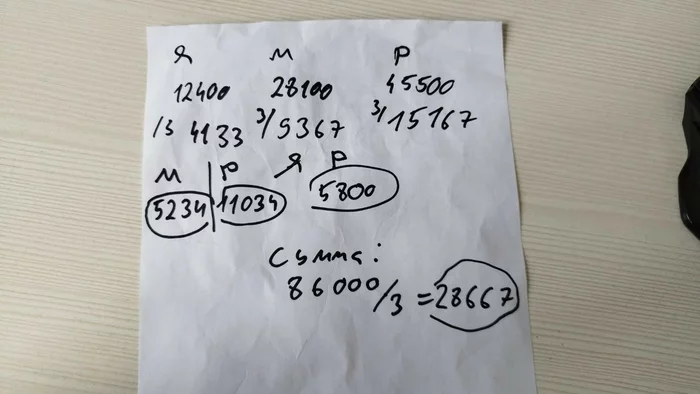 Я М Р
12400 28100 45500
/3 4133 3/9367 3/15167
М Р Я Р
5234 11034 5800
Сумма:
86000/3=28667